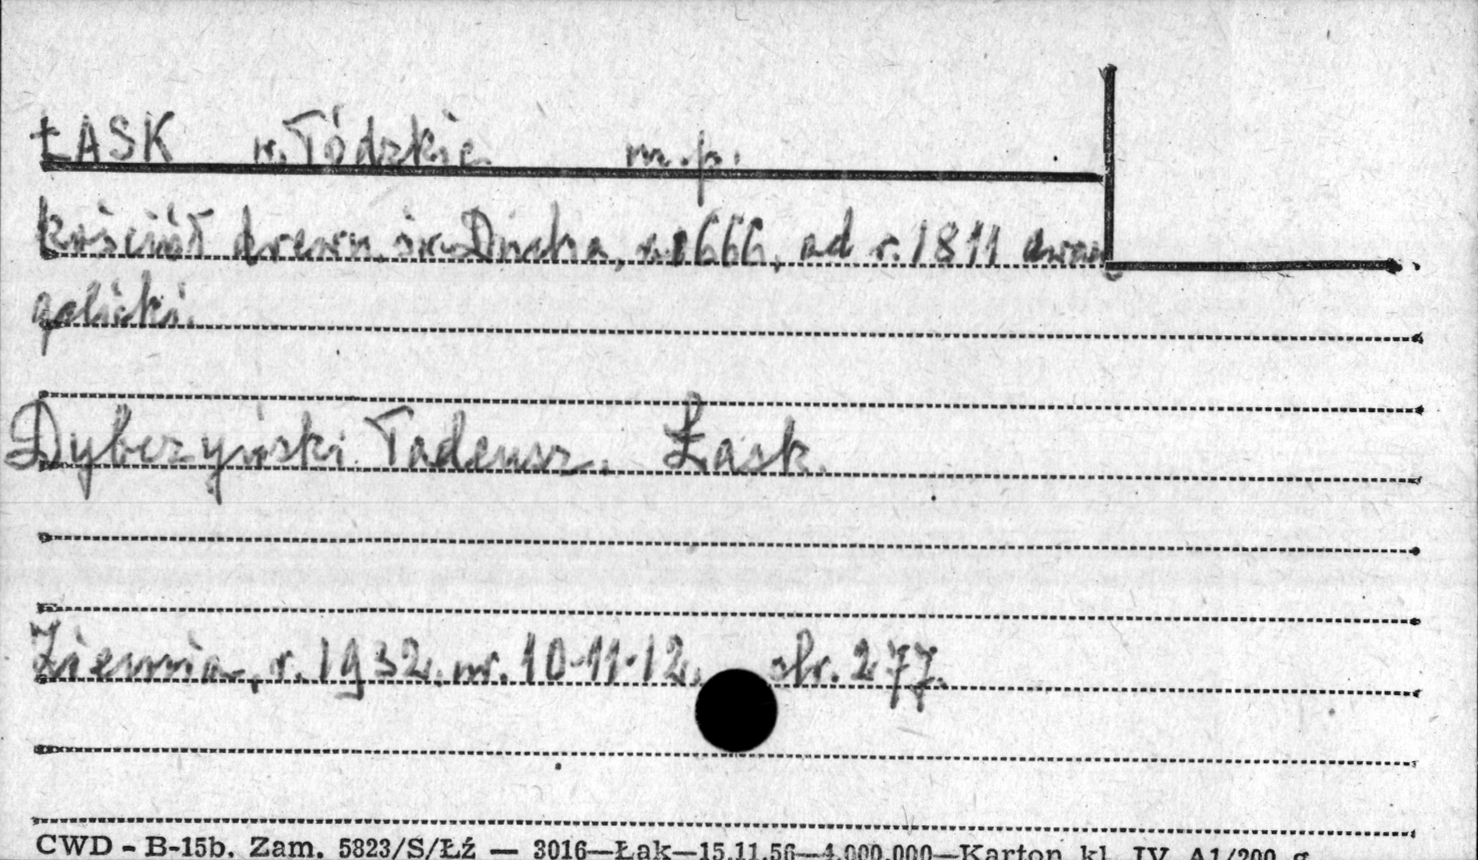 ŁASK w. Łódzkie m.p.
kościół drewn. św. Ducha, r. 1666, od r. 1811 ewan
gelicki.
Dybczyński Tadeusz. Łask.
Ziemia, r. 1932. nr. 10-11-12. str. 277.
CWD - B-15b. Zam. 5823/S/Łź — 3016—Łąk—15.11.56—4.000.000—Karton kl. IV A1/200 g